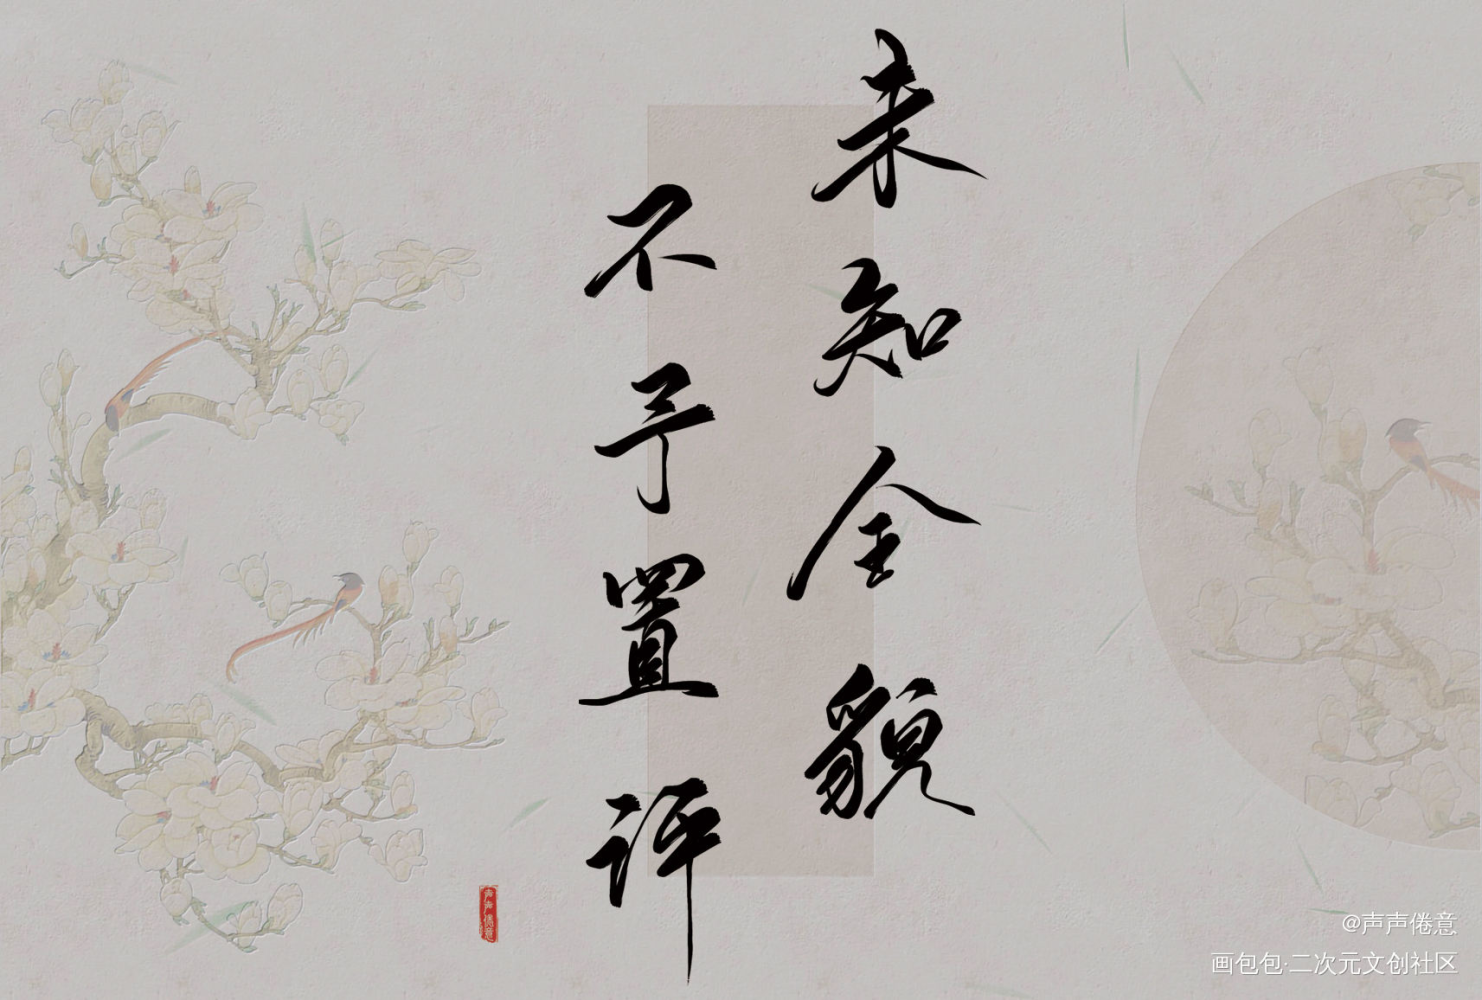 未知全貌
不予置评
声声倦意
@声声倦意
画包包·二次元文创社区